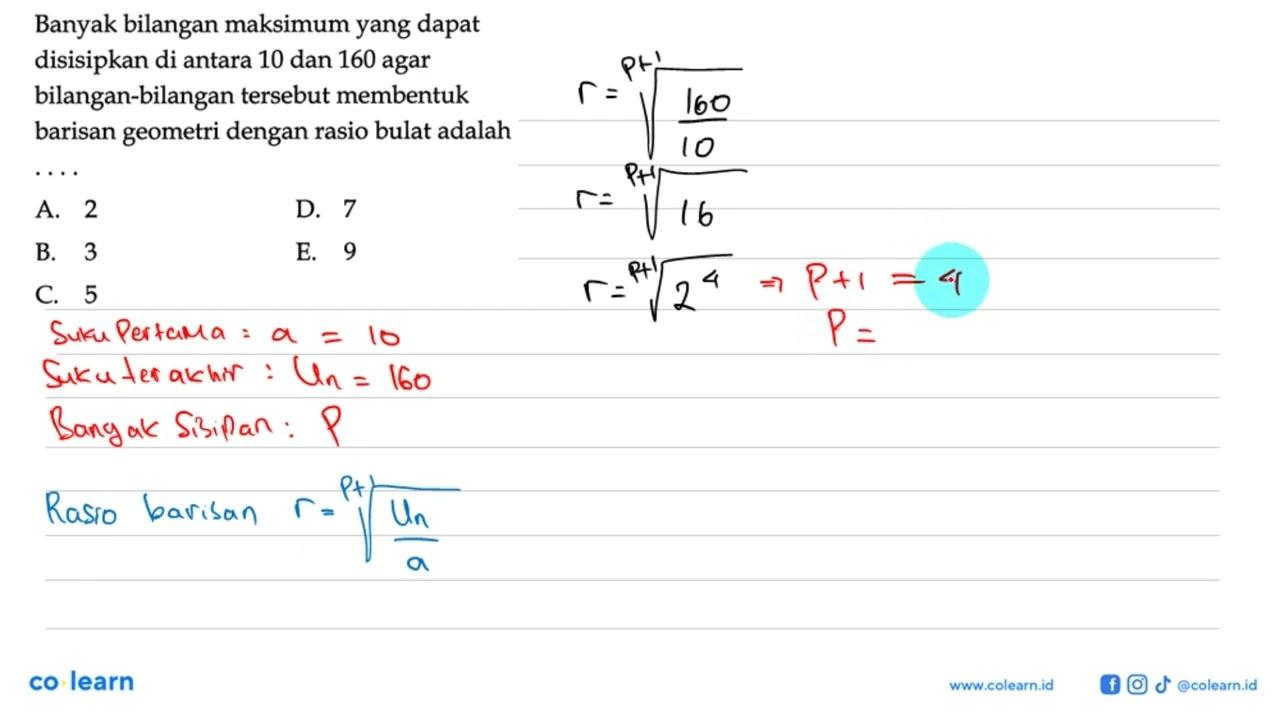 Banyak bilangan maksimum yang dapat
disisipkan di antara 10 dan 160 agar
bilangan-bilangan tersebut membentuk
barisan geometri dengan rasio bulat adalah
. . . .
A. 2
B. 3
C. 5
D. 7
E. 9
Suku Pertama : a = 10
Suku terakhir : Un = 160
Banyak Sisipan : P
Rasio barisan r = P+1√(Un/a)
r = P+1√(160/10)
r = P+1√16
r = P+1√2⁴ ⇒ P+1 = 4
P =
co·learn
www.colearn.id
@colearn.id